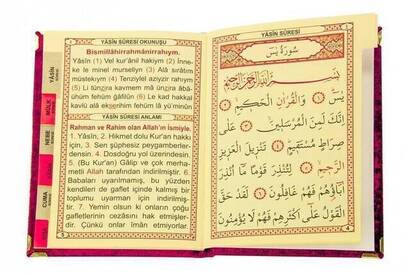 YÂSÎN SÛRESİ OKUNUŞU
Bismillâhirrahmânirrahıym.
Yâsîn (1) Vel kur'ânil hakiym (2) İnne-
ke le minel murseliyn (3) Alâ sırâtım
müstekıym (4) Tenziylel aziyzir rahıym
(5) Li tünzira kavmem mâ ünzira âbâ-
ühüm fehüm ğâfilûn (6) Le kad hakkal
kavlü alâ ekserihim fehüm lâ yü'minûn
YÂSÎN SÛRESİ ANLAMI
Rahman ve Rahim olan Allah'ın İsmiyle.
1. Yâsîn. 2. Hikmet dolu Kur'an hakkı
için, 3. Sen şüphesiz peygamberler-
densin. 4. Dosdoğru yol üzerindesin.
5. (Bu Kur'an) Gâlip ve çok merha-
metli Allah tarafından indirilmiştir. 6.
Babaları uyarılmamış, bu yüzden
kendileri de gaflet içinde kalmış bir
toplumu uyarman için indirilmiştir.
7. Yemin olsun ki onların çoğu
gafletlerinin cezâsını hak etmişler-
dir. Çünkü onlar îman etmiyorlar.
YÂSÎN
MÜLK
NEBE
CUMA
YÂSÎN SÛRESİ
سُورَةُ يٰسٓ
بِسْمِ اللّٰهِ الرَّحْمٰنِ الرَّحِيمِ
يٰسٓ ﴿١﴾ وَالْقُرْاٰنِ الْحَكِيمِ ﴿٢﴾
اِنَّكَ لَمِنَ الْمُرْسَلِينَ ﴿٣﴾ عَلٰى
صِرَاطٍ مُسْتَقِيمٍ ﴿٤﴾ تَنْزِيلَ الْعَزِيزِ
الرَّحِيمِ ﴿٥﴾ لِتُنْذِرَ قَوْمًا مَا اُنْذِرَ
اٰبَاؤُهُمْ فَهُمْ غَافِلُونَ ﴿٦﴾ لَقَدْ حَقَّ
الْقَوْلُ عَلٰى اَكْثَرِهِمْ فَهُمْ لَا يُؤْمِنُونَ